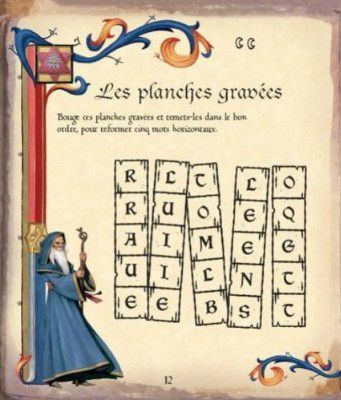 Les planches gravées
Bouge ces planches gravées et remets-les dans le bon
ordre, pour reformer cinq mots horizontaux.
R L T L O
R U O E Q
A I M E G
U I L N T
E E B S T
12